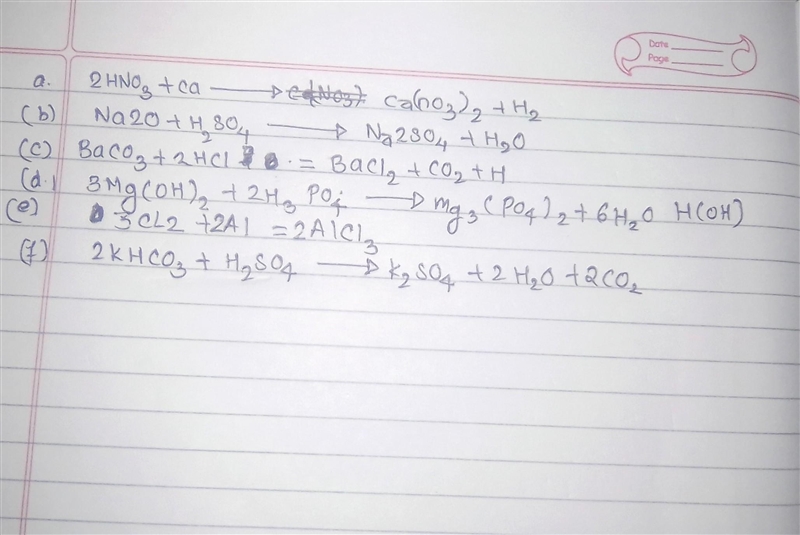 Date
Page
a. 2HNO₃ + ca → ca(no₃)₂ + H₂
(b) Na2O + H₂SO₄ → Na2SO4 + H₂O
(c) BaCO₃ + 2HCl = BaCl₂ + CO₂ + H
(d.) 3Mg(OH)₂ + 2H₃ PO₄ → mg₃(PO₄)₂ + 6H₂O H(OH)
(e) 3CL2 + 2Al = 2AlCl₃
(f) 2KHCO₃ + H₂SO₄ → K₂SO₄ + 2H₂O + 2CO₂